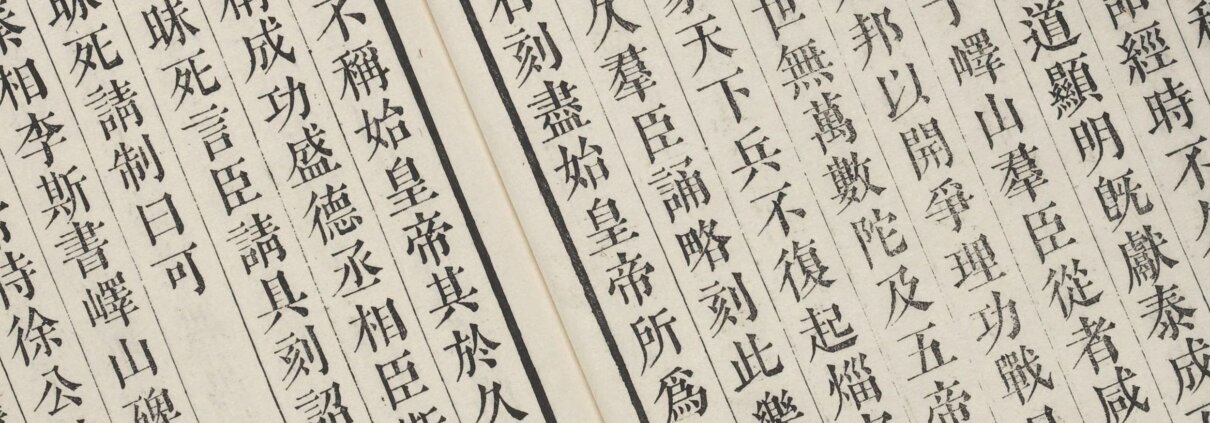 稱
詔經時不久
道顯明旣獻泰成
于嶧山羣臣從者咸
邦以開爭理功戰日
世無萬數陀及五帝
家天下兵不復起
久羣臣誦略刻此樂
石刻盡始皇帝所爲
不稱始皇帝其於久
稱成功盛德丞相臣斯
昧死言臣請具刻詔
昧死請制曰可
秦相李斯書嶧山碑
侍徐公